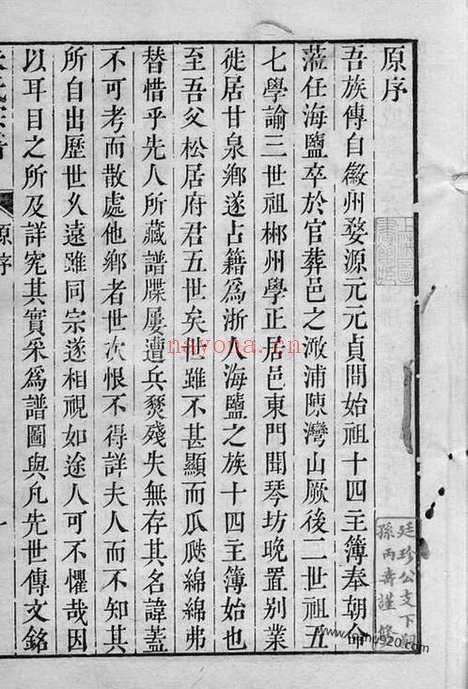 原序
吾族傳自徽州婺源元元貞間始祖十四主簿奉朝命
蒞任海鹽卒於官葬邑之澉浦陳灣山厥後二世祖五
七學諭三世祖郴州學正居邑東門聞琴坊晚置别業
徙居甘泉鄉遂占籍爲浙之海鹽之族十四主簿始也
至吾父松居府君五世矣世雖不甚顯而瓜瓞綿綿弗
替惜乎先人所藏譜牒屢遭兵燹殘失無存其名諱蓋
不可考而散處他鄉者世次恨不得詳夫人而不知其
所自出歷世久遠雖同宗遂相視如途人可不懼哉因
以耳目之所及詳究其實采爲譜圖與凡先世傳文銘
原序
一
廷珍公支下嗣
孫丙壽謹修
nayona.cn